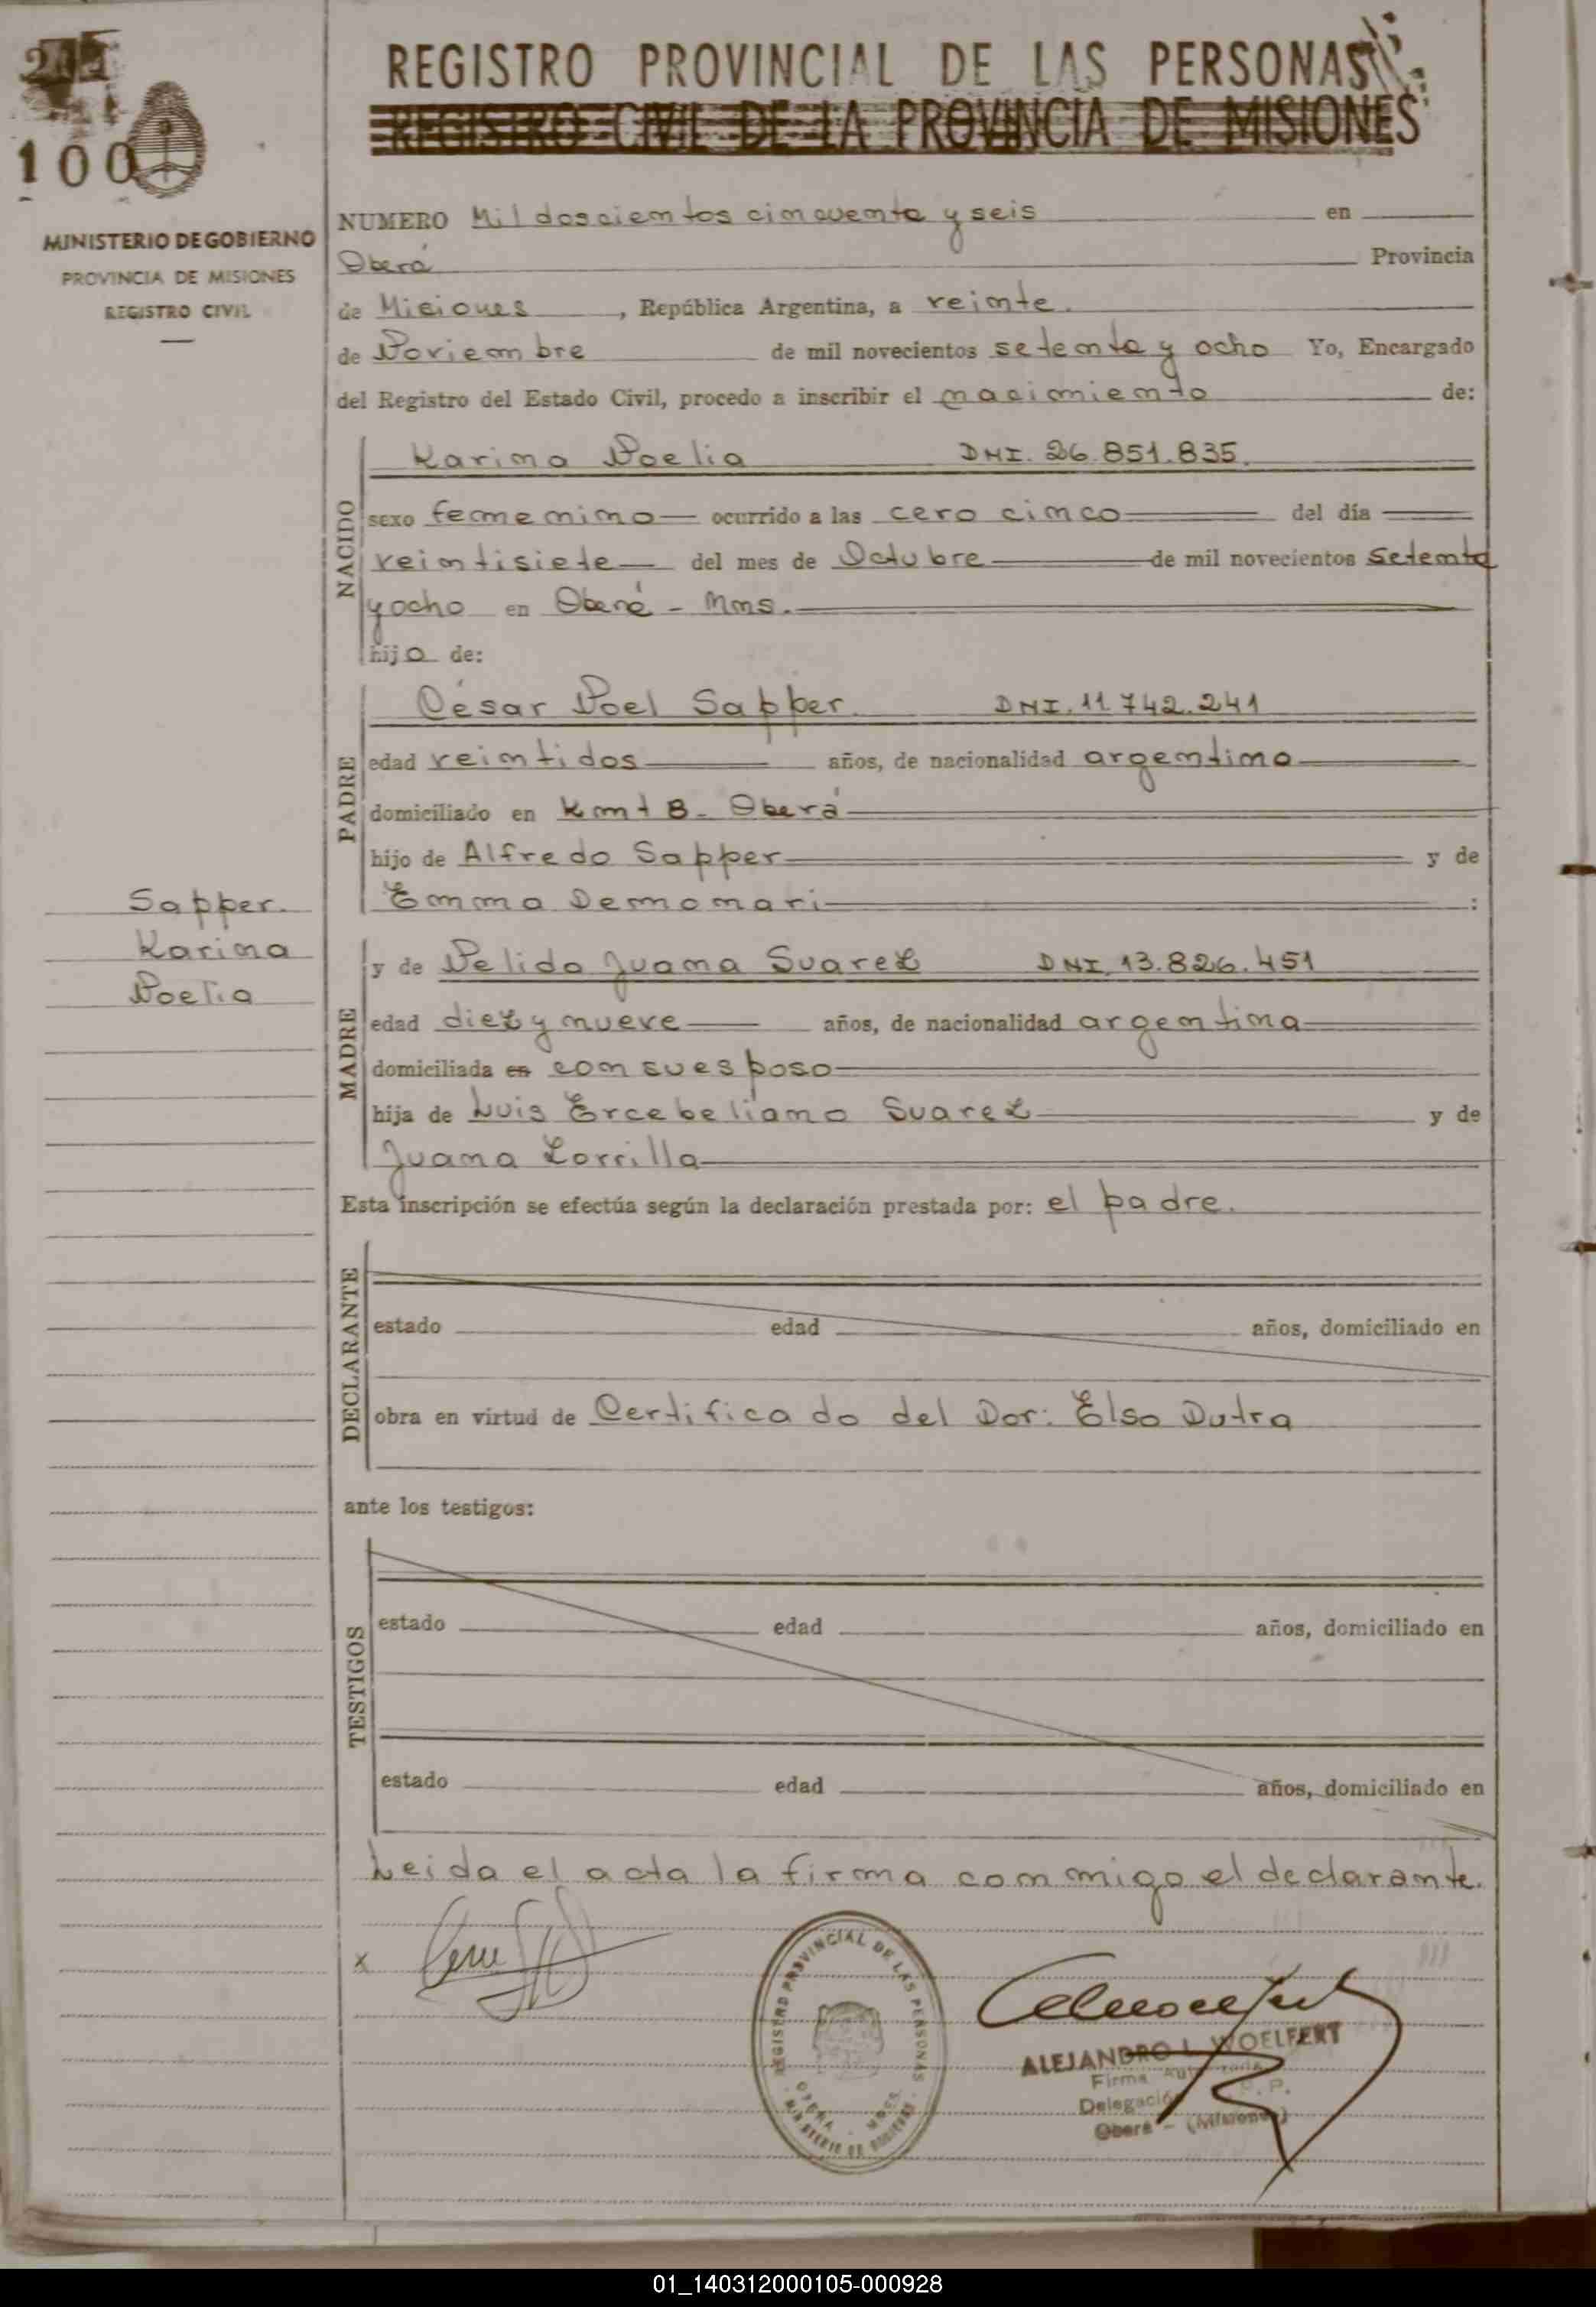 100
MINISTERIO DE GOBIERNO
PROVINCIA DE MISIONES
REGISTRO CIVIL
Sapper.
Karina
Noelia
REGISTRO PROVINCIAL DE LAS PERSONAS
REGISTRO CIVIL DE LA PROVINCIA DE MISIONES
NUMERO Mil doscientos cincuenta y seis en
Oberá Provincia
de Misiones, República Argentina, a veinte.
de Noviembre de mil novecientos setenta y ocho Yo, Encargado
del Registro del Estado Civil, procedo a inscribir el nacimiento de:
NACIDO
Karina Noelia DNI. 26.851.835.
sexo femenino ocurrido a las cero cinco del día
veintisiete del mes de Octubre de mil novecientos setenta
y ocho en Oberá - Mnes.
hija de:
PADRE
César Noel Sapper. DNI. 11.742.241
edad veintidos años, de nacionalidad argentino
domiciliado en Oberá
hijo de Alfredo Sapper y de
Emma :
MADRE
y de Nelida Juana Suarez DNI. 13.826.451
edad diez y nueve años, de nacionalidad argentina
domiciliada en con su esposo
hija de Luis Ercebeliano Suarez y de
Juana Zorrilla
Esta inscripción se efectúa según la declaración prestada por: el padre.
DECLARANTE
estado edad años, domiciliado en
obra en virtud de Certificado del Dor: Elso Dutra
ante los testigos:
TESTIGOS
estado edad años, domiciliado en
estado edad años, domiciliado en
Leida el acta la firma conmigo el declarante.
x
REGISTRO PROVINCIAL DE LAS PERSONAS
OBERÁ - MNES.
MINISTERIO DE GOBIERNO
ALEJANDRO L. WOELFERT
Firma
Delegación
Oberá - (Misiones)
01_140312000105-000928